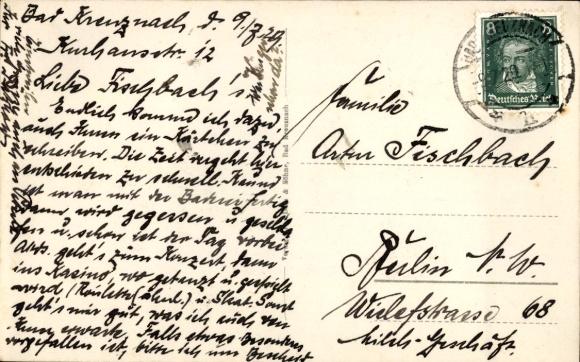 Bad Kreuznach d. 9/7 29
Kurhausstr. 12
Liebe Fischbach's!
Endlich komme ich dazu,
auch Ihnen ein Kärtchen zu
schreiben. Die Zeit vergeht hier
entschieden zu schnell. Kaum
ist man mit der Baderei fertig
dann wird gegessen u. geschla-
fen u. schon ist der Tag vorbei
Abds. geht's zum Konzert, dann
ins Kasino, wo getanzt u. gespielt
wird (Roulette (ähnl.) u. Skat. Sonst
geht's mir gut, was ich auch von
Ihnen erwarte. Falls etwas besonderes
vorgefallen ist, bitte ich um Bescheid
Familie
Artur Fischbach
Berlin N. W.
Wiclefstrasse 68
Milch-Geschäft
Deutsches Reich
8